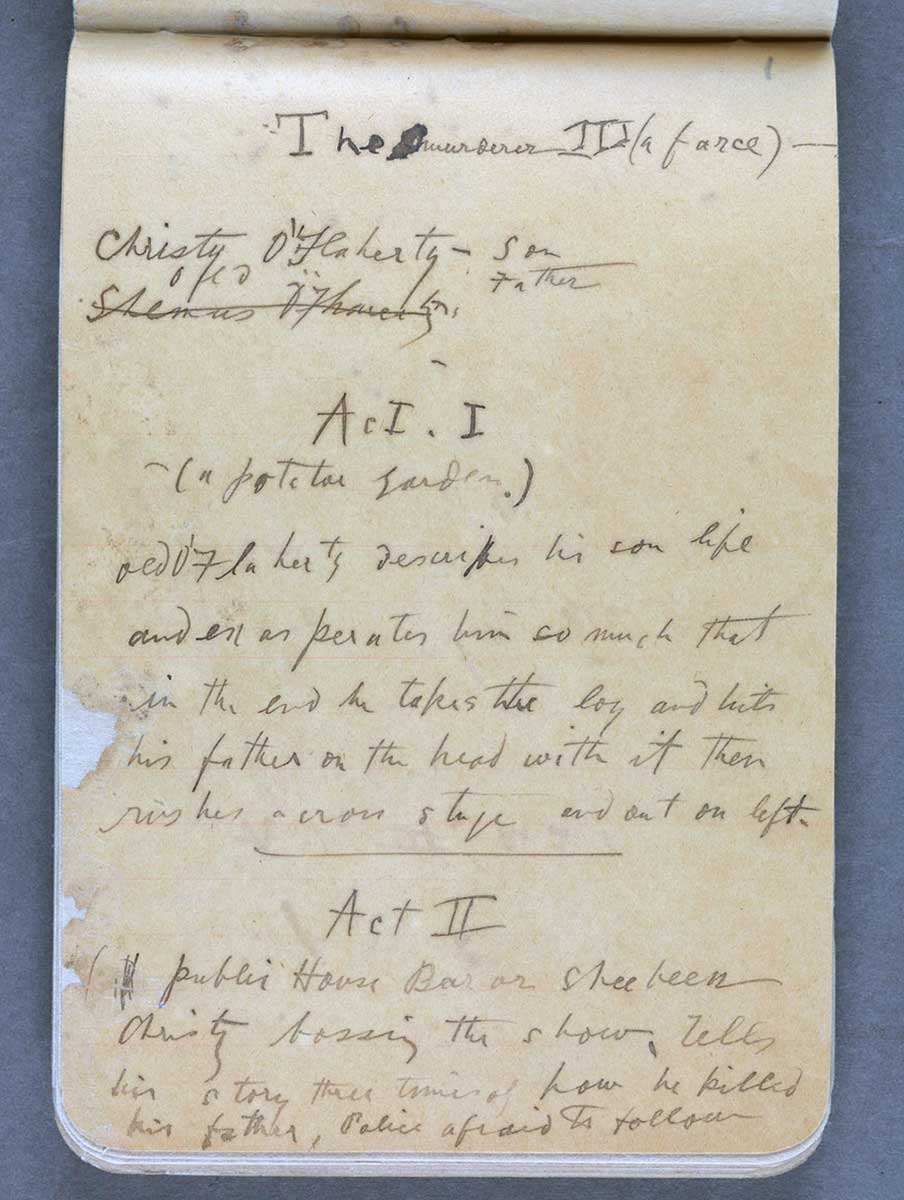 1
The murderer III (a farce) —
Christy O'Flaherty – Son
old Father
Shemus O'Flaherty
Act. I
(a potatoe garden.)
old O'Flaherty describes his son life
and exasperates him so much that
in the end he takes the loy and hits
his father on the head with it then
rushes across stage and out on left.
Act II
( public House Bar or Sheebeen
Christy bossing the show, tells
his story three times of how he killed
his father, Police afraid to follow